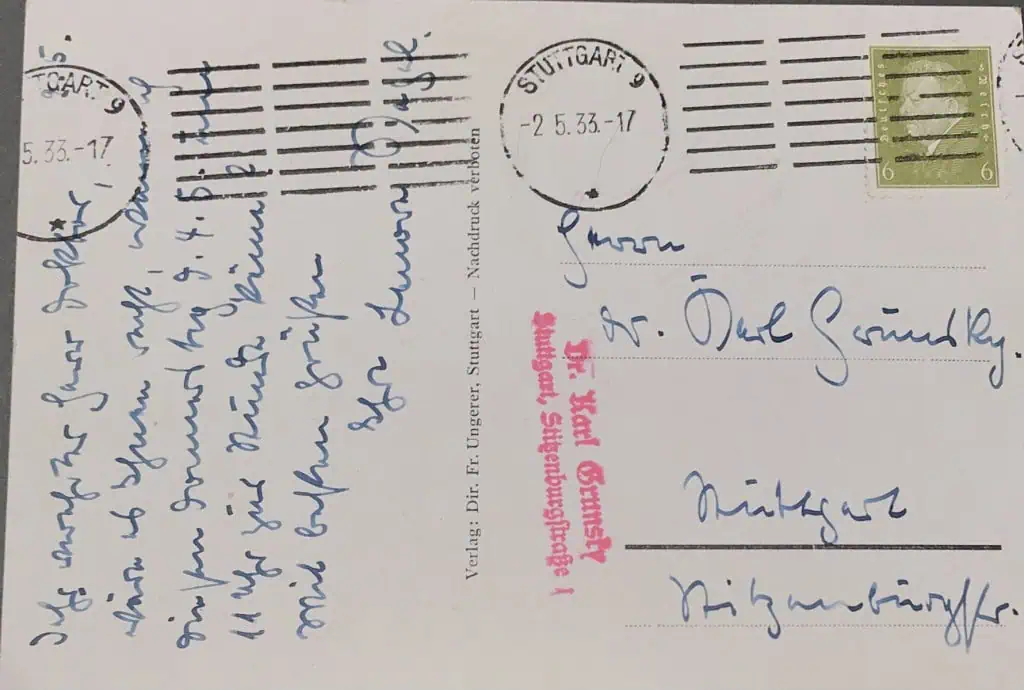 5.
Sehr verehrter Herr Doktor,
wäre es Ihnen recht, wenn ich
diesen Donnerstag d. 4. 5.
11 Uhr zur Stunde käme
Mit besten Grüßen
Ihr
TGART 9
5.33.-17
Verlag: Dir. Fr. Ungerer, Stuttgart – Nachdruck verboten
STUTTGART 9
-2 5.33.-17
Deutsches Reich
6 6
Herrn
Dr. Karl Grunsky.
Stuttgart
Stitzenburgstr.
Dr. Karl Grunsky
Stuttgart, Stitzenburgstraße 1